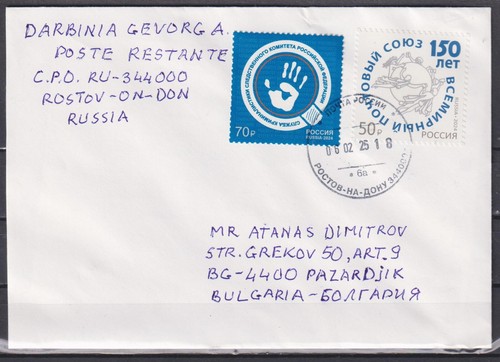 DARBINIA GEVORG A.
POSTE RESTANTE
C.P.O. RU-344000
ROSTOV-ON-DON
RUSSIA
СЛУЖБА КРИМИНАЛИСТИКИ СЛЕДСТВЕННОГО КОМИТЕТА РОССИЙСКОЙ ФЕДЕРАЦИИ
70₽
РОССИЯ
RUSSIA·2024
ВСЕМИРНЫЙ ПОЧТОВЫЙ СОЮЗ
150
ЛЕТ
50₽
РОССИЯ
RUSSIA · 2024
ПОЧТА РОССИИ
06 02 25 1 8
* 6а *
РОСТОВ-НА-ДОНУ 344000
MR ATANAS DIMITROV
STR. GREKOV 50, ART. 9
BG-4400 PAZARDJIK
BULGARIA-БОЛГАРИЯ